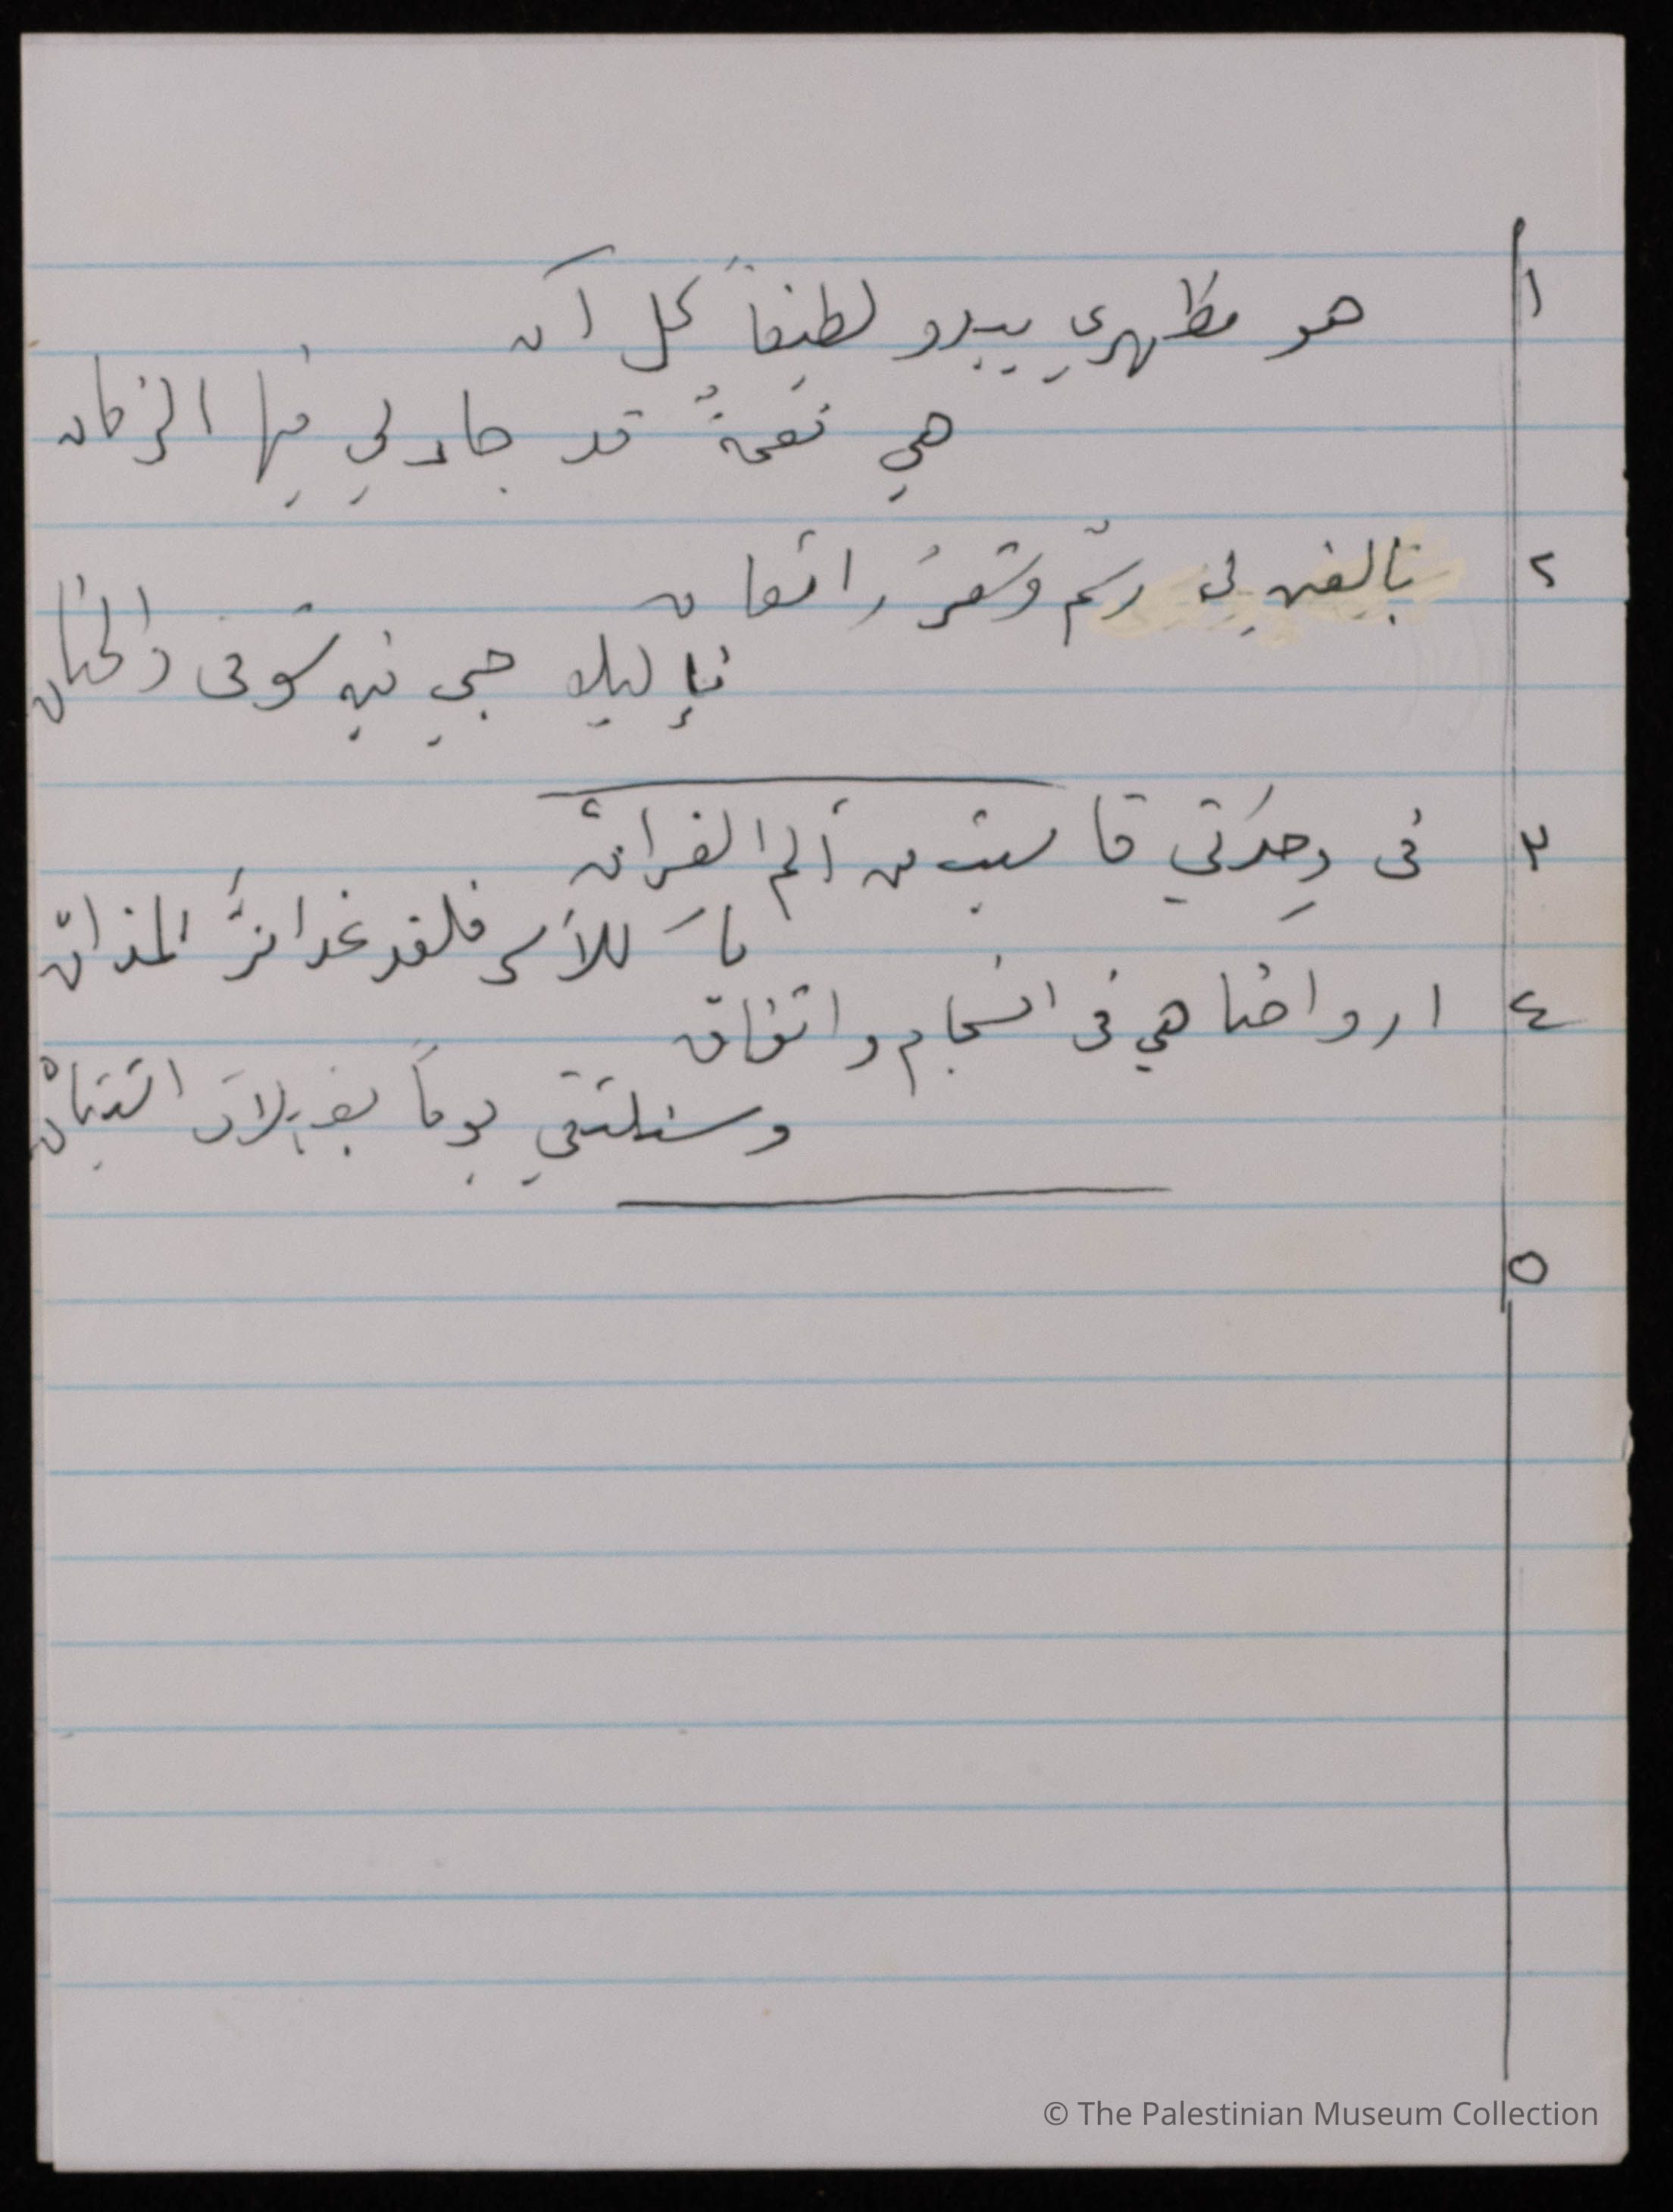 ١ هو مظهري يبدو لطيفاً كل آن
هي نعمةٌ قد جاد لي فيها الزمان
٢ بالفن لي رسمٌ وشعرٌ رائعان
نبإ ليلا حبي فيه شوقي والحنان
٣ في وحدَتي قاسيت من ألم الفراق
يا للأسى فلقد غدا مُرَّ المذاق
٤ ارواحنا هي في انسجام واتفاق
وسنلتقي يوماً بغيلان اشتياق
٥
© The Palestinian Museum Collection